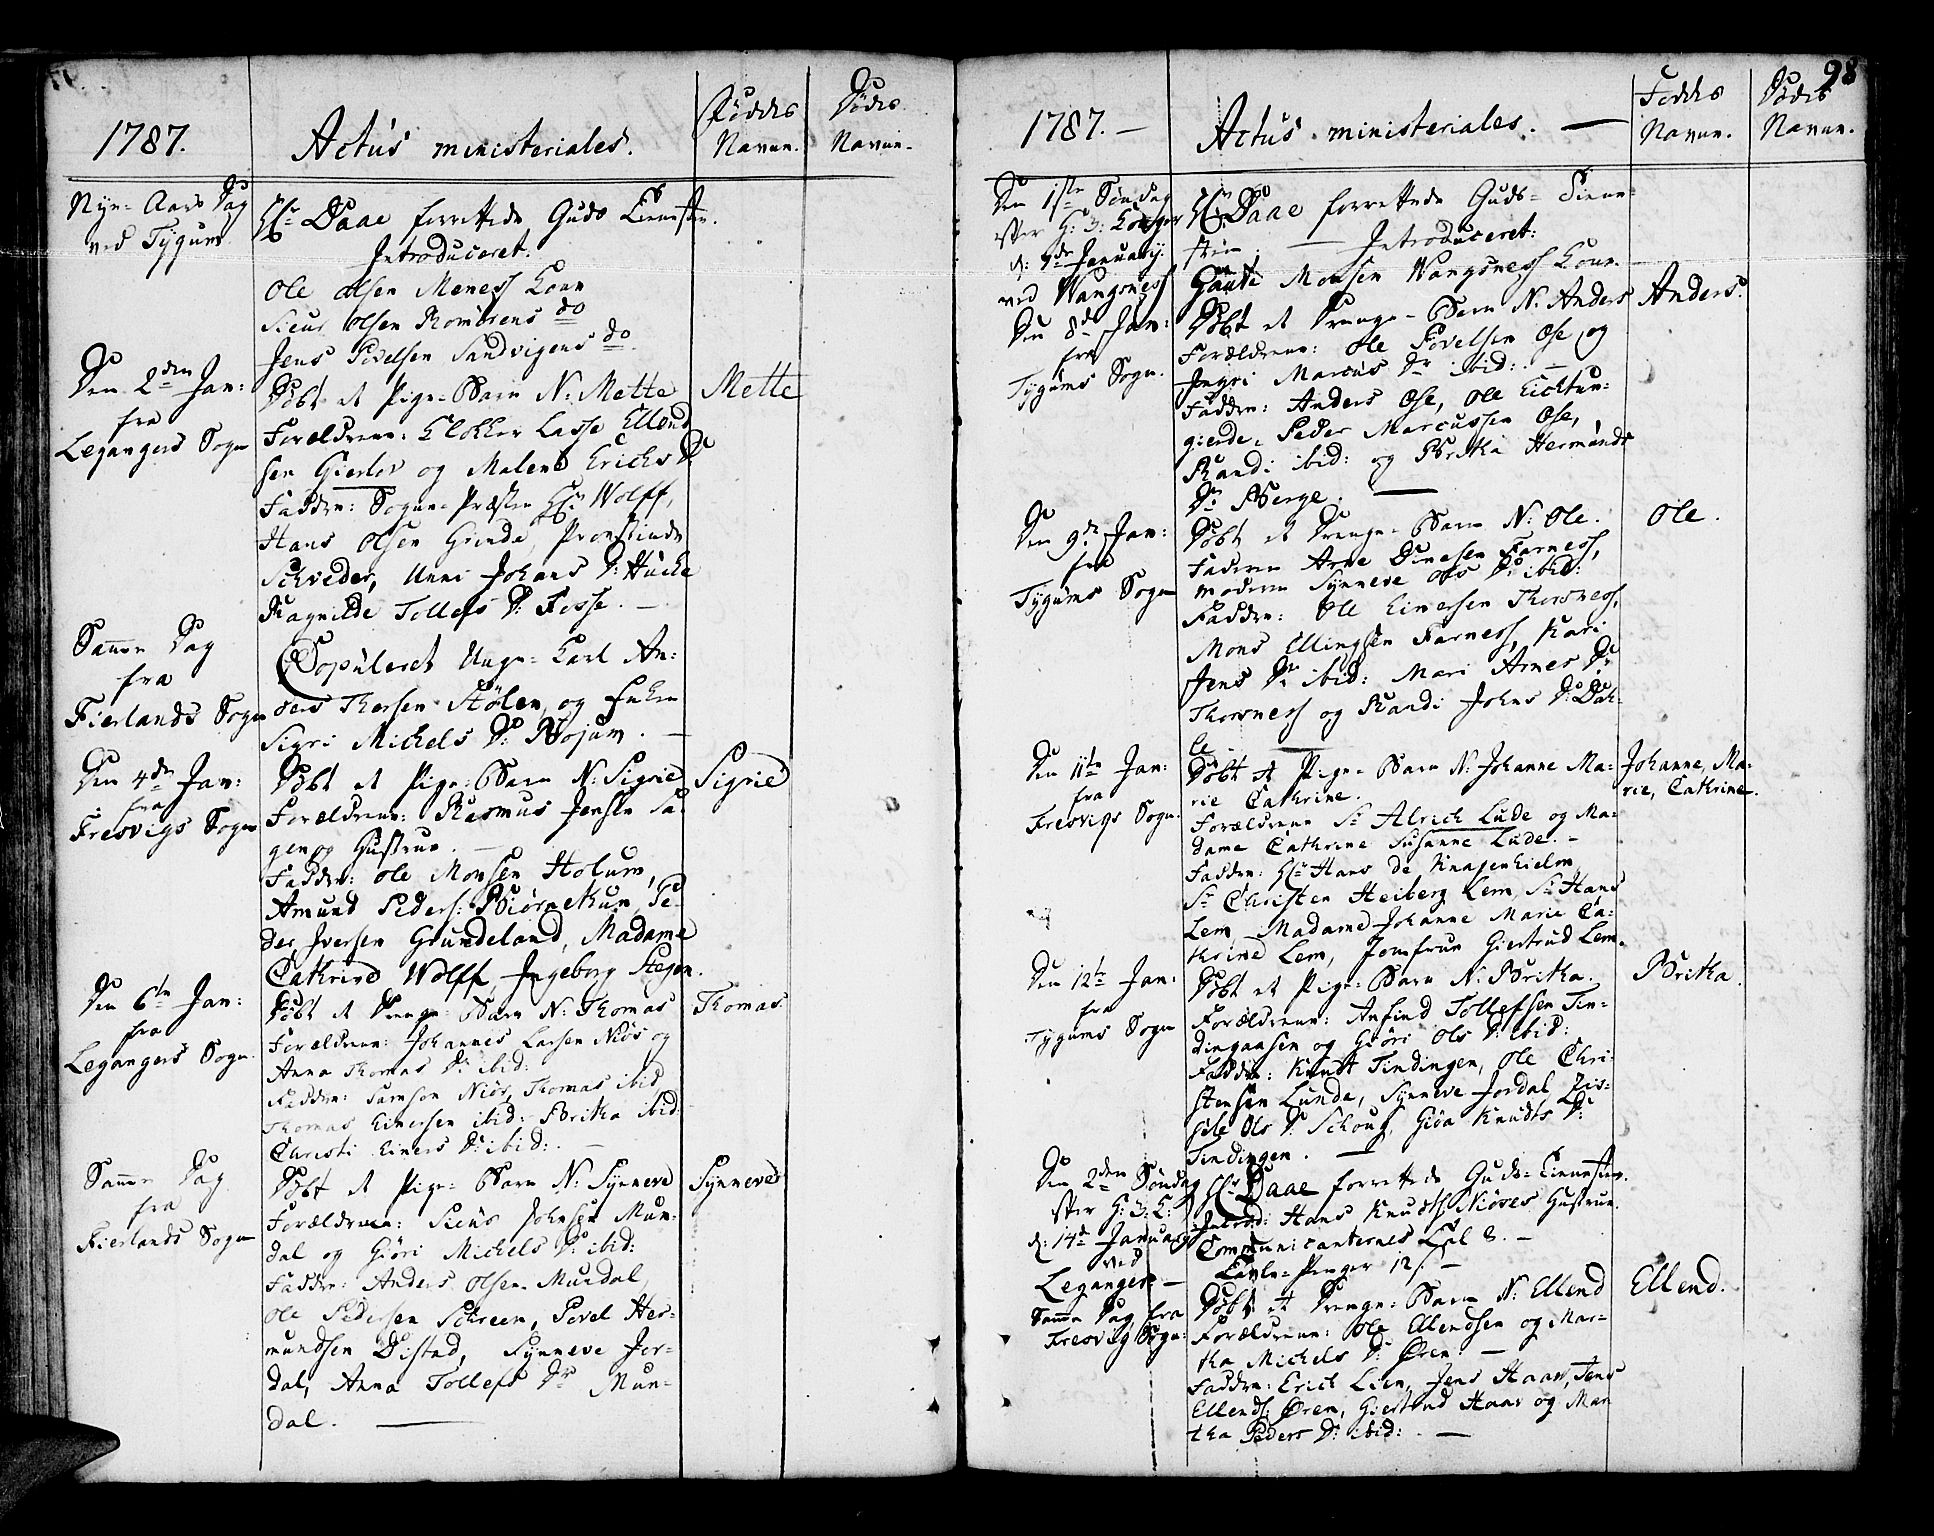 1787.
Actus ministeriales.
Føddes Navne.
Dødes Navne.
Nye-Aars Dag
ved Tygum
Hr. Daae forrettede Guds Tienesten.
Introduceret:
Ole Olsen Meness Kone
Siur Olsen Romørens do
Jens Povelsen Sandvigens do.
Den 2den Jan:
fra
Legangers Sogn
Døbt et Pige-Barn N: Mette
Mette
Forældrene: Klokker Lasse Ellend
sen Gierløv og Malene Erichs D:
Faddre: Sogne-Præsten Hr. Wolff,
Hans Olsen Grinde, Provstinde
Schveder, Unni Johans D: Hucke
Ragnilde Tollefs D: Fosse.
Samme Dag
fra
Fierlands Sogn
Copuleret Unge-Karl An-
ders Thersen Stølen, og Enken
Sigri Michels D: Bojum.
Den 4de Jan:
fra
Fresvigs Sogn
Døbt et Pige-Barn N: Sigrie
Sigrie
Forældrene: Rasmus Jensen Sa-
gen og Hustrue.
Faddre: Ole Monsen Holum,
Amund Peders: Biørnekun, Pe-
der Iversen Grundeland, Madame
Cathrine Wolff, Ingeborg Stegen.
Den 6te Jan:
fra
Legangers Sogn.
Døbt et Drenge-Barn N: Thomas
Thomas.
Forældrene: Johannes Larsen Niøs og
Anna Thomas D: ibid:
Faddre: Samson Niøs, Thomas ibid
Thomas Einersen ibid: Britha ibid:
Christi Einers D: ibid:.
Samme Dag
fra
Fierlands Sogn
Døbt et Pige-Barn N: Synneve
Synneve
Forældrene: Siurs Johnsen Mun-
dal og Giøri Michels D: ibid:
Faddre: Anders Olsen Mundal,
Ole Pedersen Schreen, Povel Her-
mundsen Distad, Synneve Jor-
dal, Anna Tollefs Dr Mun-
dal.
98
1787.
Actus ministeriales.
Føddes Navne.
Dødes Navne.
Den 1ste Søndag
efter H: 3: Konger
d: 7de January.
ved Wangsness
Hr. Daae forrettede Guds-Tiene-
sten. Introduceret:
Gaute Monsen Wangsness Kone.
Den 8de Jan:
fra
Tygums Sogn.
Døbt et Drenge-Barn N: Anders
Anders.
Forældrene: Ole Povelsen Ose og
Ingri Marcus Dr ibid:
Faddre: Anders Ose, Ole Eichtun-
gierde, Peder Marcussen Ose,
Randi ibid: og Britha Hermunds
Dr Berge.
Den 9de Jan:
fra
Tygums Sogn
Døbt et Drenge-Barn N: Ole.
Ole.
Faderen Arne Dinesen Farness,
moderen Synneve Ols D: ibid:
Faddre: Ole Einersen Thorsness,
Mons Ellingsen Farness, Kari
Jens Dr ibid: Mari Arnes Dr
Thorsness og Randi Johns D: Dah-
le.
Den 11te Jan:
fra
Fresvigs Sogn.
Døbt et Pige-Barn N: Johanne Ma-
rie Cathrine.
Johanne, Ma-
rie, Cathrine.
Forældrene Sr Alrich Lude og Ma-
dame Cathrine Susanne Lude.
Faddre: Hr. Hans de Knagenhielm,
Sr Christen Heiberg Lem, Sr Hans
Lem, Madame Johanne Marie Ca-
thrine Lem, Jomfrue Giertrud Lem.
Den 12te Jan:
fra
Tygums Sogn
Døbt et Pige-Barn N: Britha.
Britha.
Forældrene: Anfind Tollefsen Tin-
dingaasen og Giøri Ols D: ibid:
Faddre: Knut Tindingen, Ole Chri-
stensen Lunde, Synneve Jordal, Zis-
sile Ols D: Schoug, Giøa Knuds D:
Tindingen.
Den 2den Søndag
efter H: 3: K:
d: 14de January
ved
Leganger
Hr. Daae forrettede Guds-Tienesten.
Introd: Hans Knuds: Niøses Hustrue.
Communicanternes Tal 8.
Tavle-Penger 12 s.
Samme Dag, fra
Fresvig Sogn:
Døbt et Drenge-Barn N: Ellend
Ellend.
Forældrene: Ole Ellendsen og Mar-
tha Michels D: Øren.
Faddre: Erich Lien, Jens Haav, Jens
Ellends: Øren, Giertrud Haav og Mar
tha Peders D: ibid:.